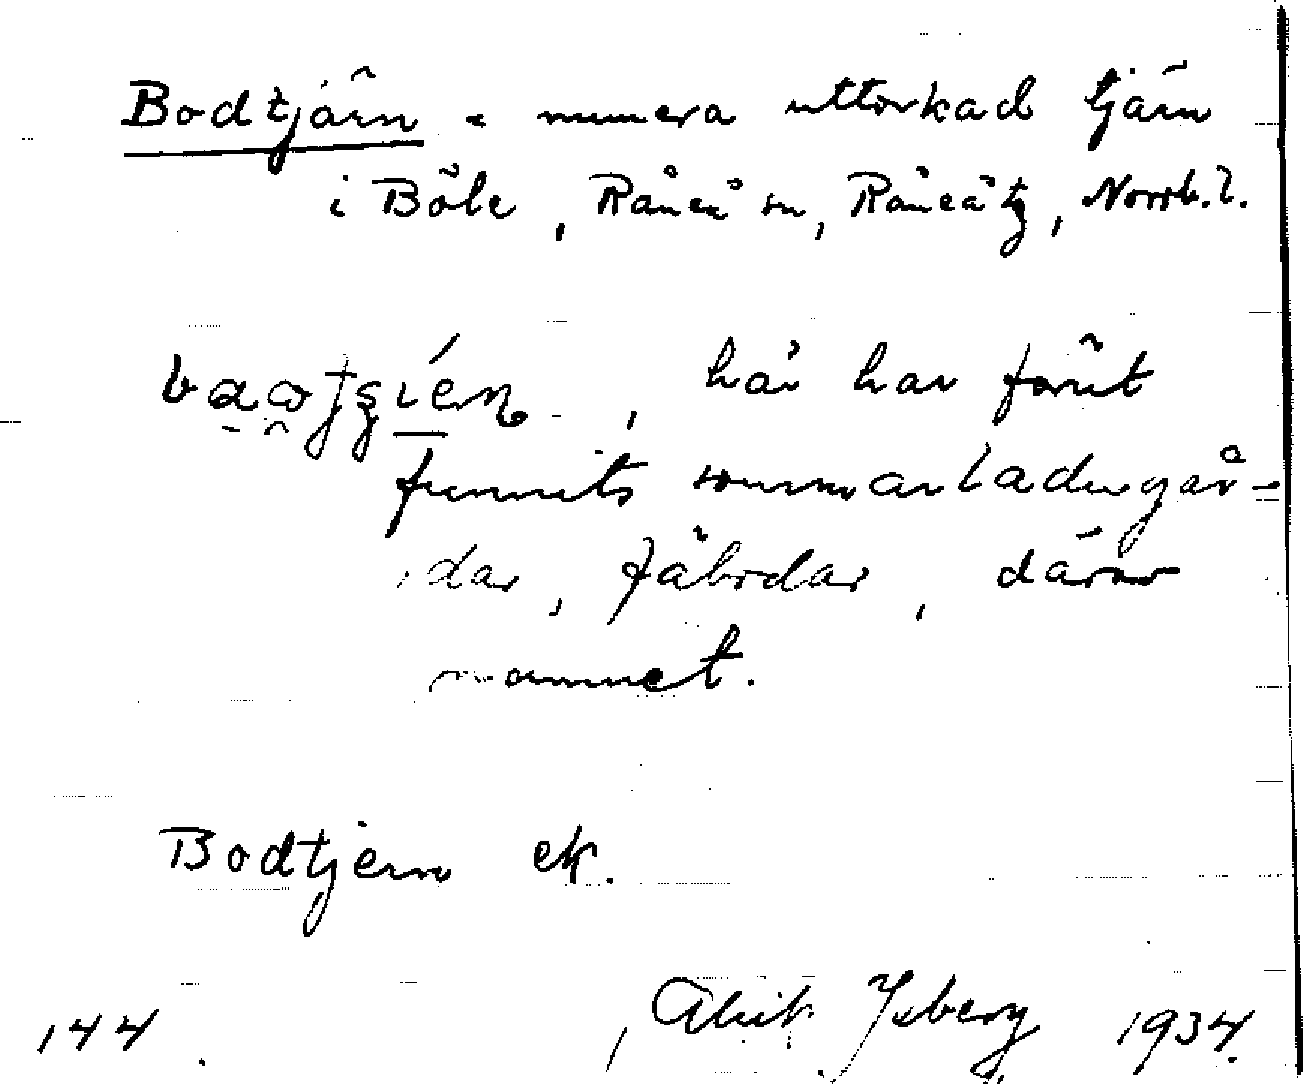 Bodtjärn = numera uttorkad tjärn
i Böle, Råneå sn, Råneå tg, Norrb. l.
här har förut
funnits sommarladugår-
dar, fäbodar, därav
namnet.
Bodtjern ek.
144 Isberg 1934.